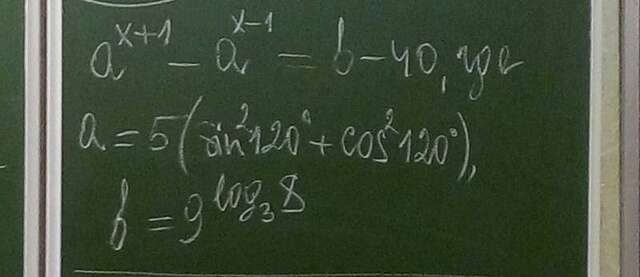 a^{x+1} - a^{x-1} = b - 40, где
a = 5 (sin²120° + cos²120°),
b = 9^{log₃ 8}